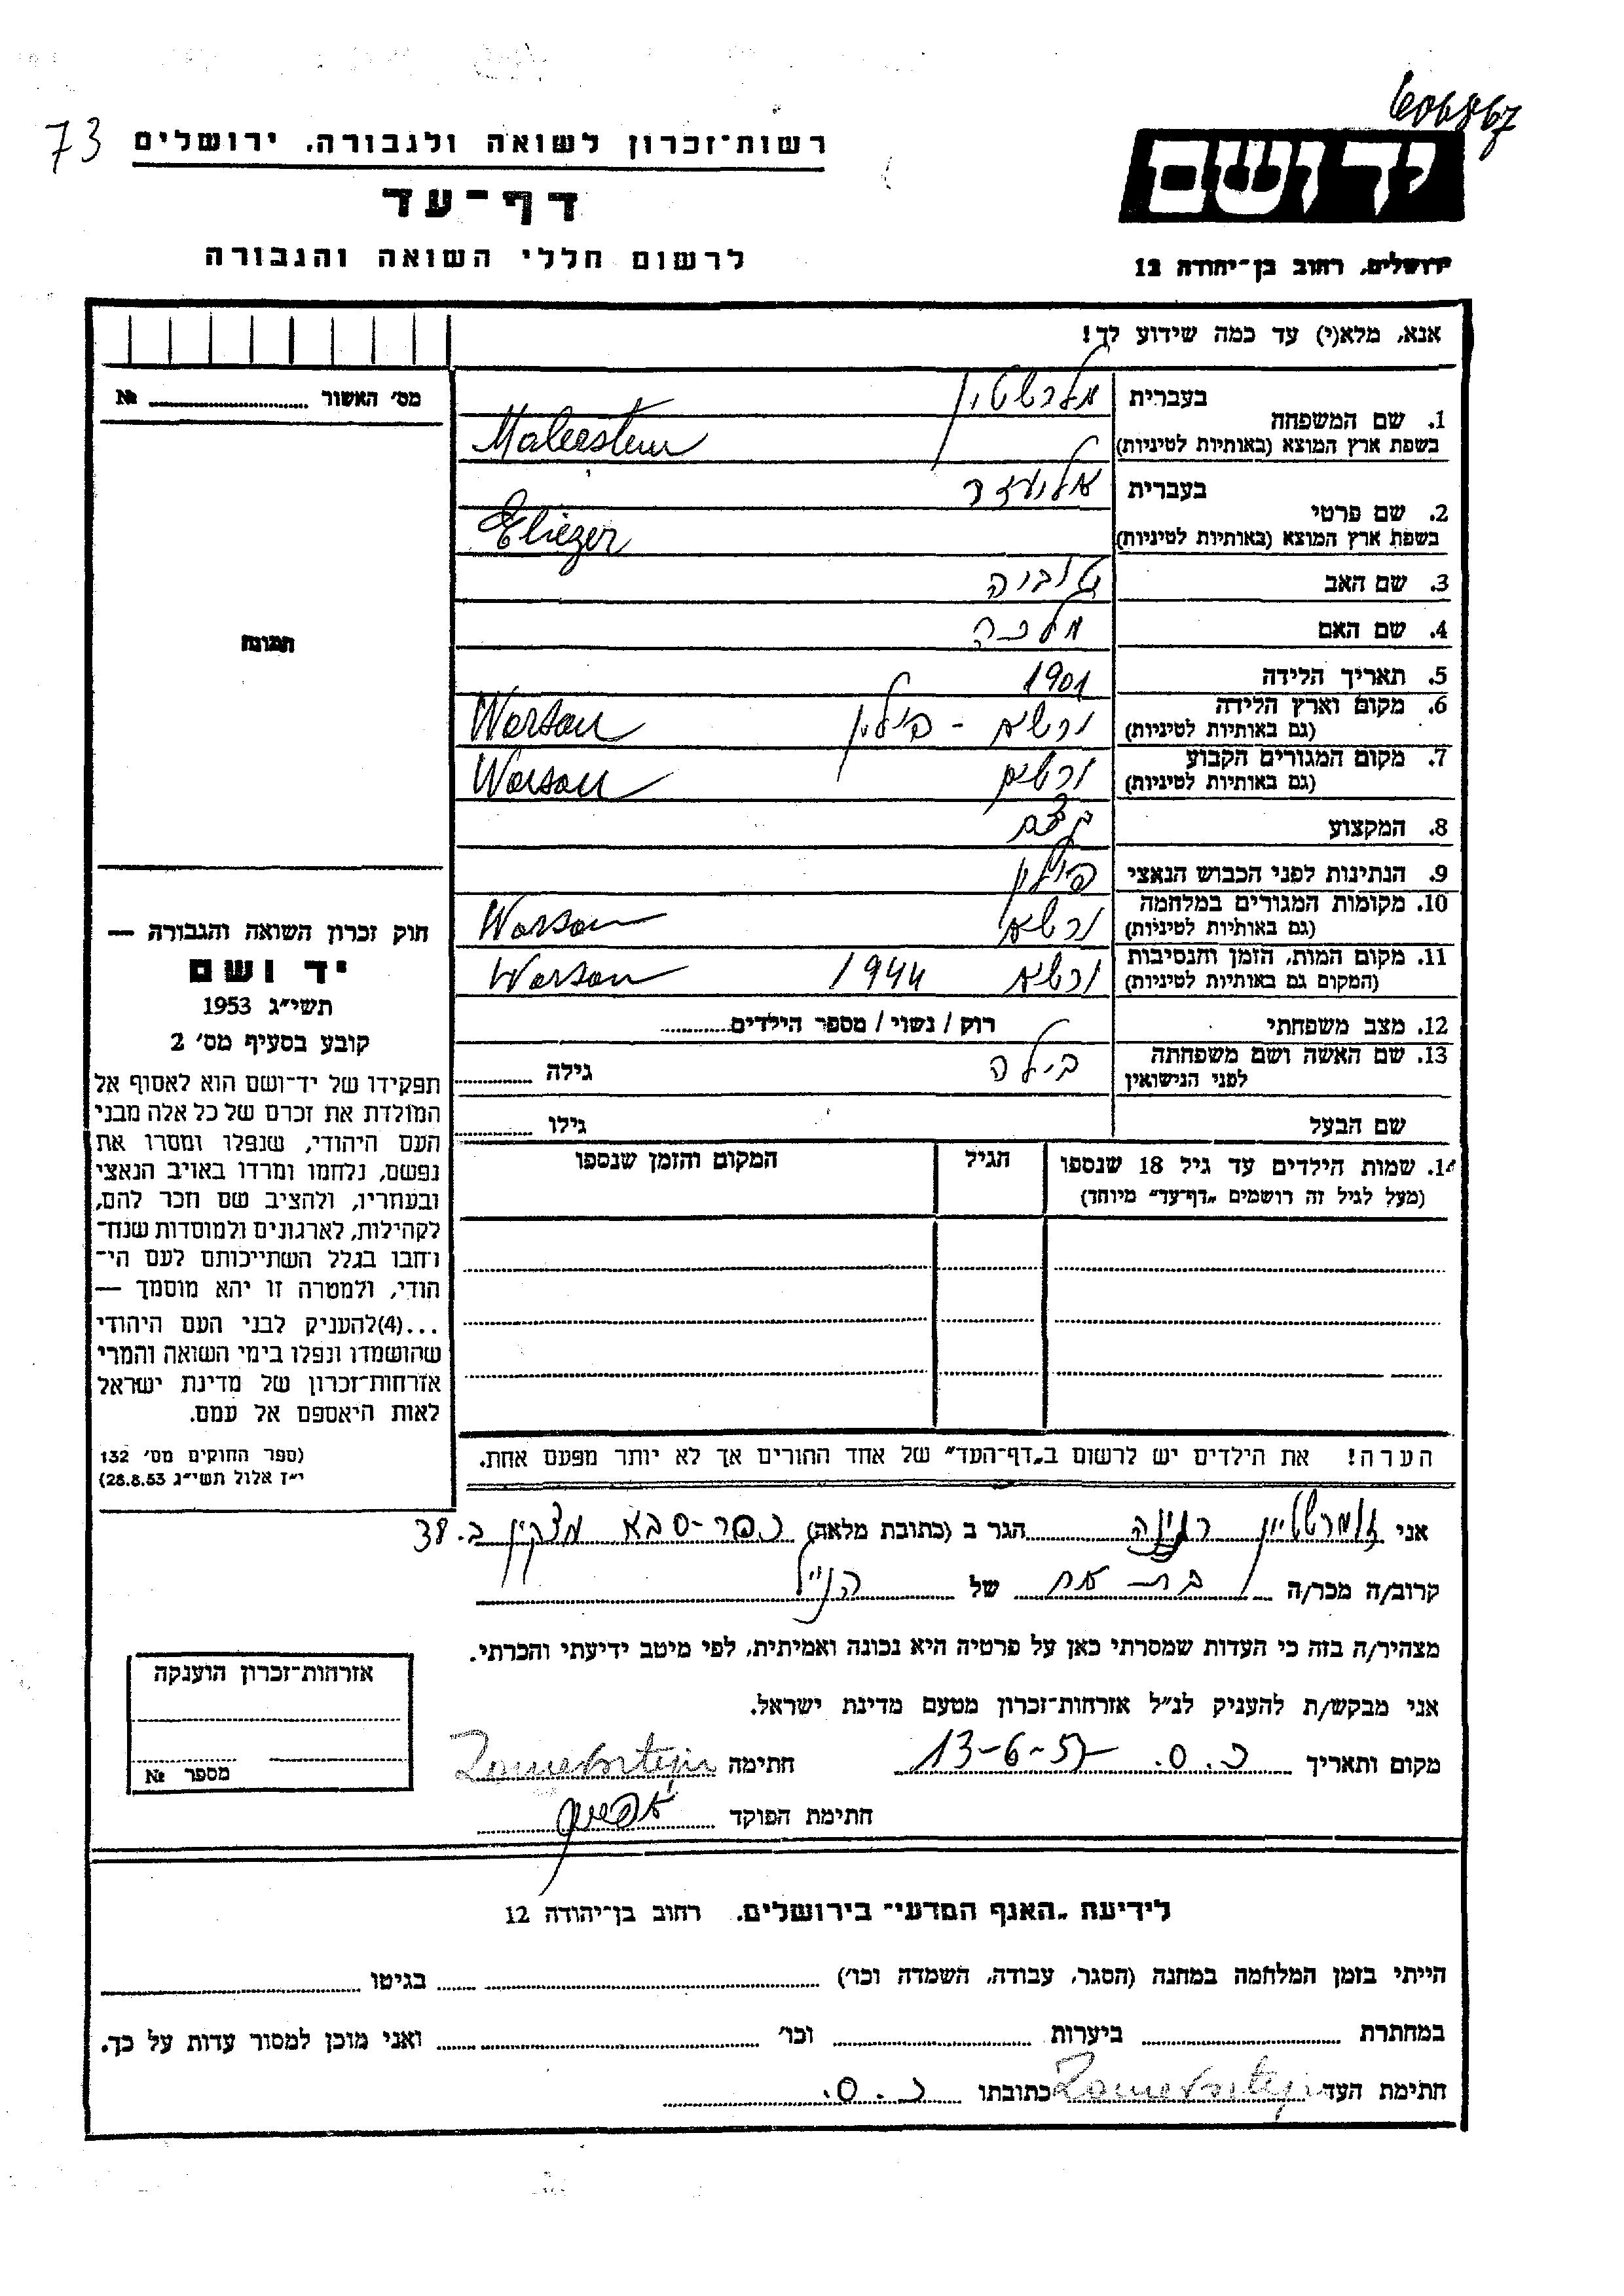 606867
73
רשות־זכרון לשואה ולגבורה. ירושלים
דף־עד
לרשום חללי השואה והגבורה
יד ושם
ירושלים, רחוב בן־יהודה 12
אנא, מלא(י) עד כמה שידוע לך!
מס׳ האשור № ........
תמונה
1. שם המשפחה בעברית מלרשטין
בשפת ארץ המוצא (באותיות לטיניות) Malerstein
2. שם פרטי בעברית אליעזר
בשפת ארץ המוצא (באותיות לטיניות) Eliezer
3. שם האב טוביה
4. שם האם מלכה
5. תאריך הלידה 1901
6. מקום וארץ הלידה (גם באותיות לטיניות) ורשה - פולין Warsau
7. מקום המגורים הקבוע (גם באותיות לטיניות) ורשה Warsau
8. המקצוע
9. הנתינות לפני הכבוש הנאצי פולין
10. מקומות המגורים במלחמה (גם באותיות לטיניות) ורשה Warsau
11. מקום המות, הזמן והנסיבות (המקום גם באותיות לטיניות) ורשה 1944 Warsau
12. מצב משפחתי רוק / נשוי / מספר הילדים........
13. שם האשה ושם משפחתה לפני הנישואין בילה גילה ........
שם הבעל גילו ........
14. שמות הילדים עד גיל 18 שנספו הגיל המקום והזמן שנספו
(מעל לגיל זה רושמים „דף־עד״ מיוחד)
הערה! את הילדים יש לרשום ב„דף־העד״ של אחד ההורים אך לא יותר מפעם אחת.
חוק זכרון השואה והגבורה —
יד ושם
תשי״ג 1953
קובע בסעיף מס׳ 2
תפקידו של יד־ושם הוא לאסוף אל
המולדת את זכרם של כל אלה מבני
העם היהודי, שנפלו ומסרו את
נפשם, נלחמו ומרדו באויב הנאצי
ובעוזריו, ולהציב שם וזכר להם,
לקהילות, לארגונים ולמוסדות שנח־
רבו בגלל השתייכותם לעם הי־
הודי, ולמטרה זו יהא מוסמך —
...(4)להעניק לבני העם היהודי
שהושמדו ונפלו בימי השואה והמרי
אזרחות־זכרון של מדינת ישראל
לאות היאספם אל עמם.
(ספר החוקים מס׳ 132
י״ז אלול תשי״ג 28.8.53)
אני זומרשטיין רגינה הגר ב (כתובת מלאה) כפר-סבא ב.38
קרוב/ה מכר/ה בת אח של הנ״ל
מצהיר/ה בזה כי העדות שמסרתי כאן על פרטיה היא נכונה ואמיתית, לפי מיטב ידיעתי והכרתי.
אני מבקש/ת להעניק לנ״ל אזרחות־זכרון מטעם מדינת ישראל.
מקום ותאריך כ.ס. 13-6-57 חתימה Zomersztejn
חתימת הפוקד
אזרחות־זכרון הוענקה
מספר №
לידיעת „האגף המדעי״ בירושלים. רחוב בן־יהודה 12
הייתי בזמן המלחמה במחנה (הסגר, עבודה, השמדה וכו׳) ........ בגיטו ........
במחתרת ........ ביערות ........ וכו׳ ........ ואני מוכן למסור עדות על כך.
חתימת העד Zomersztejn כתובתו כ.ס.